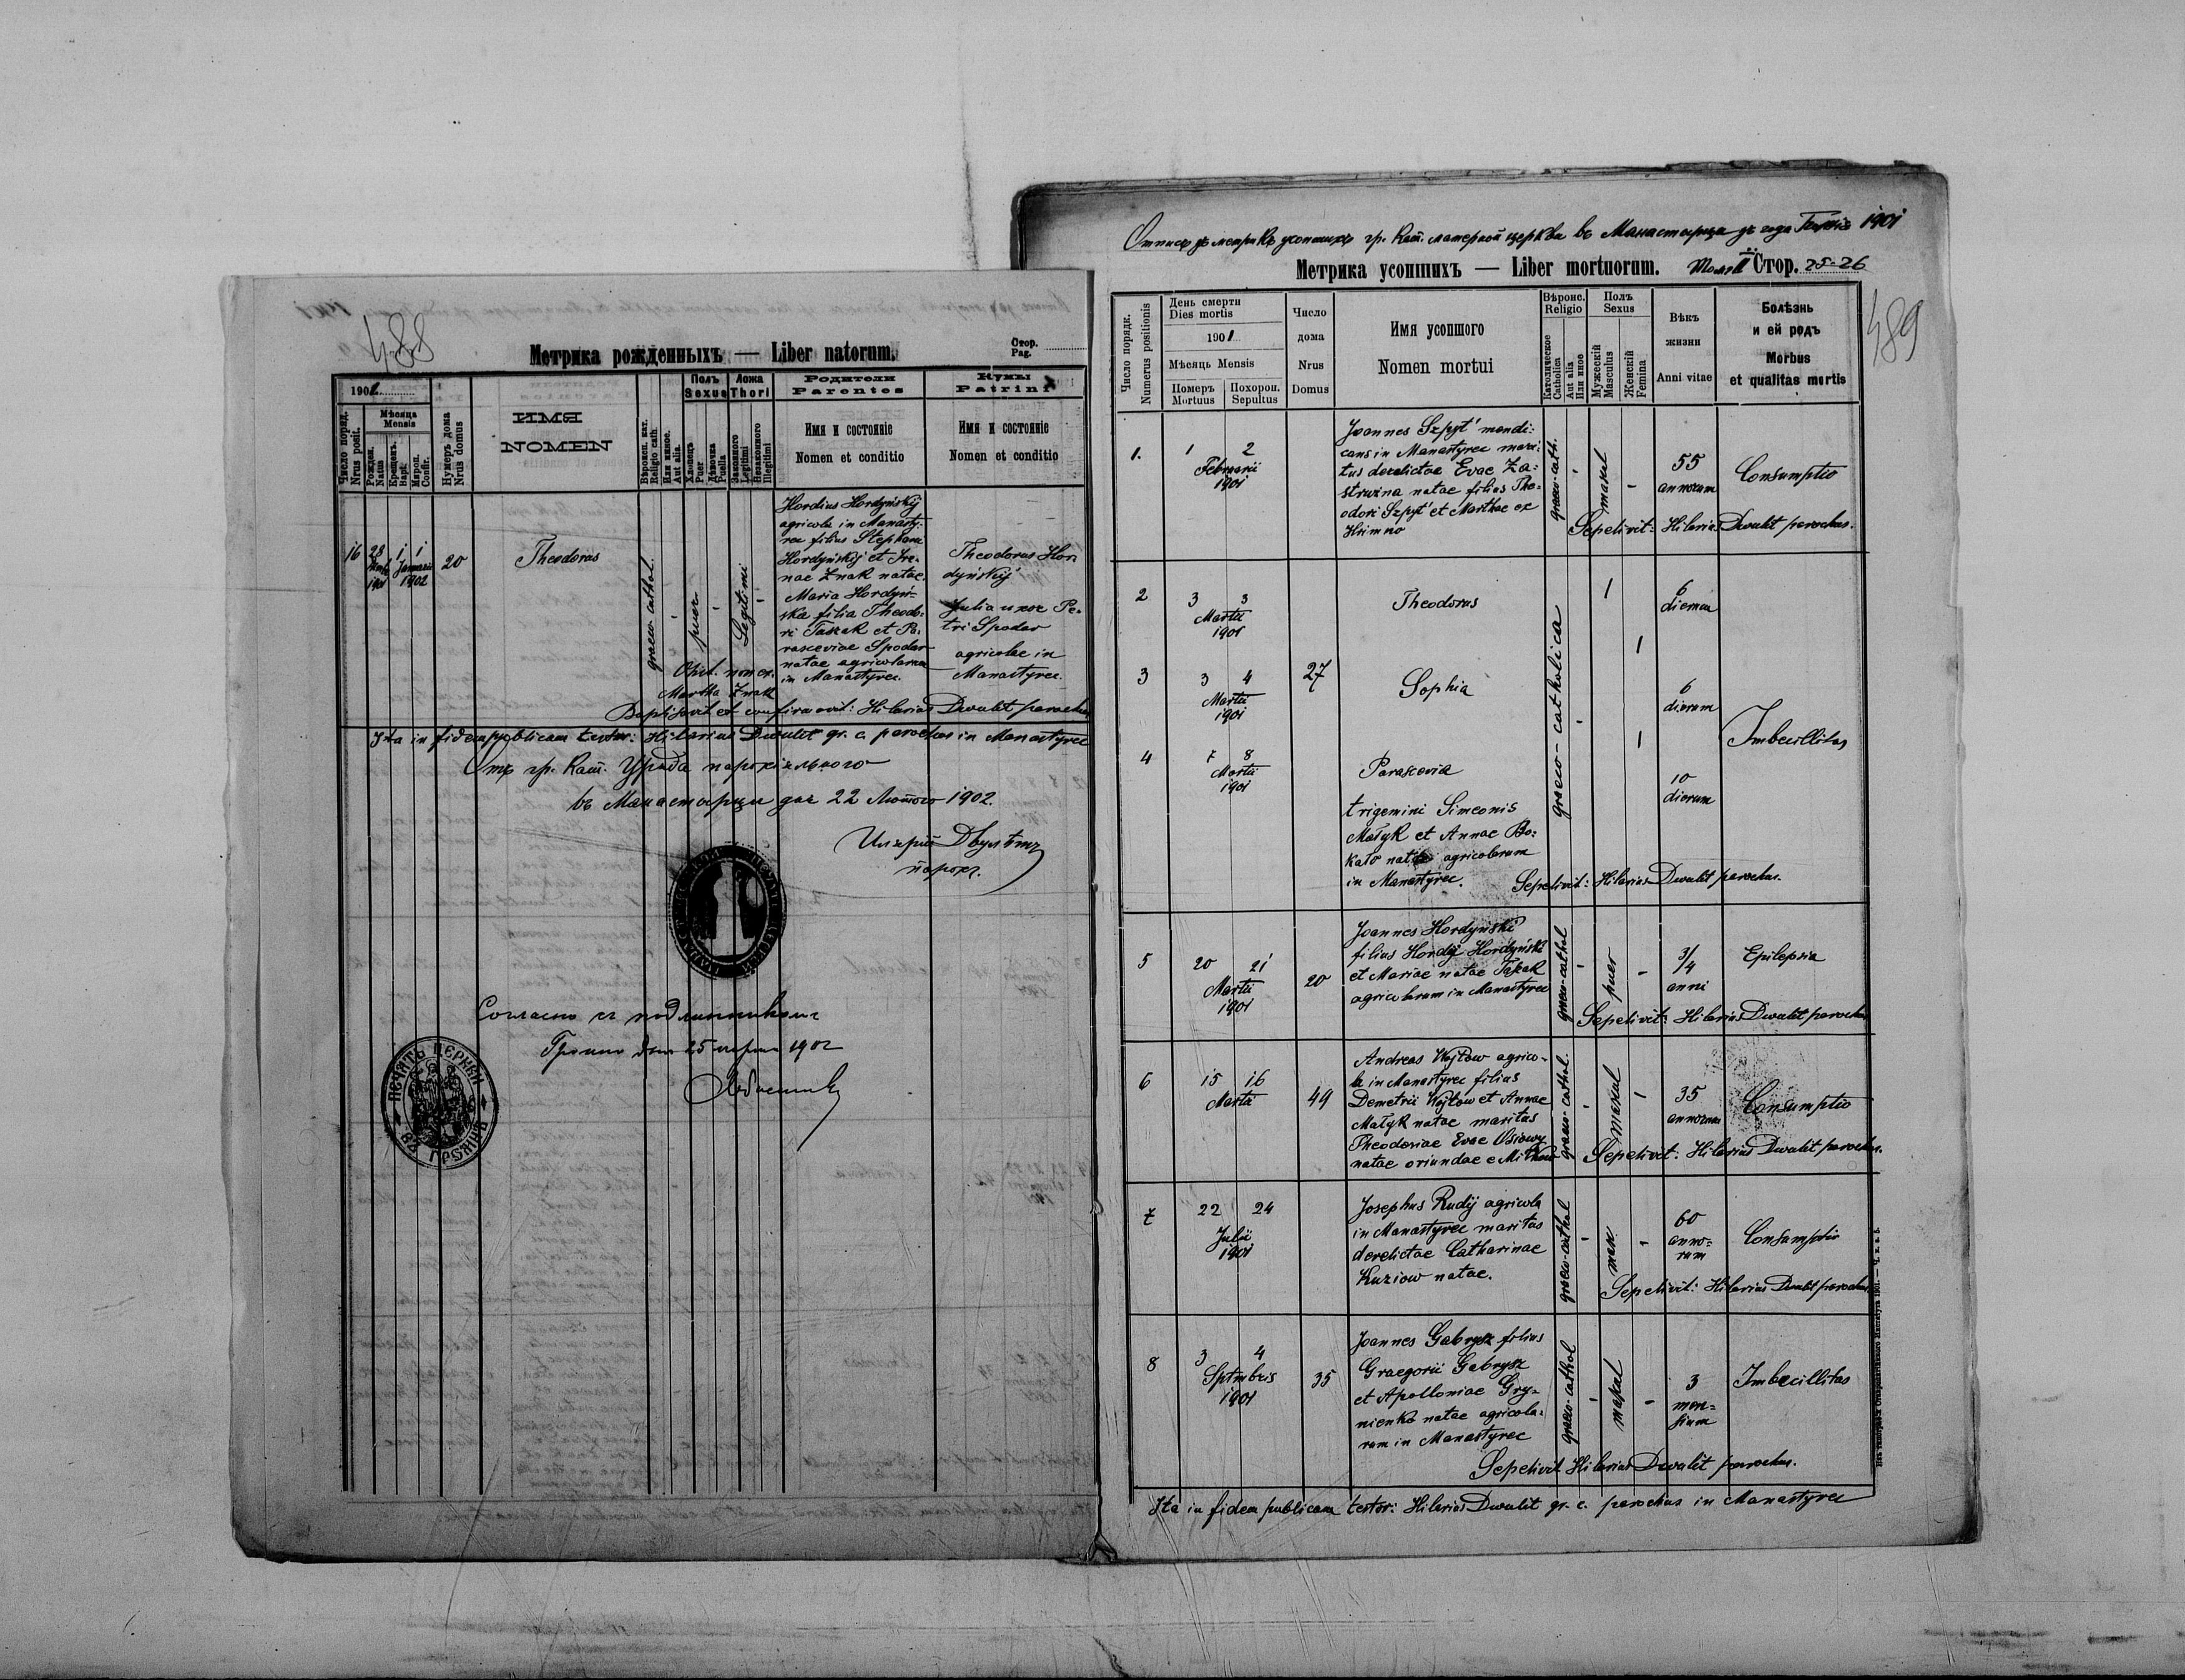 488
Метрика рожденныхъ — Liber natorum.
Стор.
Pag.
1902
Число поряд.
Nrus posit.
Мѣсяца
Mensis
Рожден.
Natus
Крещенъ.
Bapt.
Миров.
Confir.
Нумеръ дома
Nrus domus
ИМЯ
NOMEN
Вѣроисп. кат.
Religio cath.
Или иное.
Aut alia.
Полъ
Sexus
Хлопецъ
Puer
Дѣвочка
Puella
Ложа
Thori
Законного
Legitimi
Незаконного
Illegitimi
Родители
Parentes
Имя и состояніе
Nomen et conditio
Кумы
Patrini
Имя и состояніе
Nomen et conditio
16
28
1901
1 1
Januarii
1902
20
Theodorus
graeco-cathol.
-
puer
-
Legitimi
-
Hordius Hordyńskij
agricola in Manasty-
rec filius Stephani
Hordyńskij et Ire-
nae Znak natae.
Maria Hordyń-
ska filia Theodo-
ri Taszak et Pa-
rasceviae Spodar
natae agricolarum
in Manastyrec.
Theodorus Hor-
dyńskij
Julia uxor Pe-
tri Spodar
agricolae in
Manastyrec.
Obst. non ex.
Martha Znak
Baptisavit et confirmavit: Hilarius Dwulit parochus
Ita in fidem publicam testor: Hilarius Dwulit gr. c. parochus in Manastyrec
Отъ гр. кат. Уряда парохіяльного
въ Манастырци дня 22 Лютого 1902.
Иларій Двулѣтъ
парохъ.
Согласно съ подлинникомъ
дня 25 марта 1902
ПЕЧАТЬ ЦЕРКВИ
489
Отпись зъ метрикъ усопшихъ гр. кат. матерной церкви въ Манастырци зъ года 1901
Метрика усопшихъ — Liber mortuorum. Томъ II Стор. 25-26
Число порядк.
Numerus positionis
День смерти
Dies mortis
1901
Мѣсяць Mensis
Померъ
Mortuus
Похорон.
Sepultus
Число
дома
Nrus
Domus
Имя усопшого
Nomen mortui
Вѣроис.
Religio
Католическое
Catholica
Aut alia
Или иное
Полъ
Sexus
Мужескій
Masculus
Женскій
Femina
Вѣкъ
жизни
Anni vitae
Болѣзнь
и ей родъ
Morbus
et qualitas mortis
1.
1 2
Februarii
1901
Joannes Szpyt' mendi-
cans in Manastyrec mari-
tus derelictae Evae Za-
struzna natae filius The-
odori Szpyt' et Marthae ex
Hrimno
graeco-cath.
-
mascul
-
55
annorum
Consumptio
Sepelivit: Hilarius Dwulit parochus.
2
3 3
Martii
1901
Theodorus
1
6
dierum
3
3 4
Martii
1901
27
Sophia
graeco-catholica
-
1
6
dierum
Imbecillitas
4
7 8
Martii
1901
Parascevia
1
10
dierum
trigemini Simeonis
Małyk et Annae Bo-
kało natae agricolarum
in Manastyrec.
Sepelivit: Hilarius Dwulit parochus.
5
20 21
Martii
1901
20
Joannes Hordyński
filius Hordij Hordyński
et Mariae natae Taszak
agricolarum in Manastyrec
graeco-cathol
-
puer
-
3/4
anni
Epilepsia
Sepelivit: Hilarius Dwulit parochus
6
15 16
Martii
49
Andreas Wojtow agrico-
la in Manastyrec filius
Demetrii Wojtow et Annae
Małyk natae maritus
Theodoriae Evae Osiowy
natae oriundae e
graeco-cathol.
-
maskul
1
35
annorum
Consumptio
Sepelivit: Hilarius Dwulit parochus.
7
22 24
Julii
1901
Josephus Rudij agricola
in Manastyrec maritus
derelictae Catharinae
Kuziow natae.
graeco-cathol
-
mask.
-
60
anno-
rum
Consumptio
Sepelivit: Hilarius Dwulit parochus
8
3 4
Sptmbris
1901
35
Joannes Gabrysz filius
Graegorii Gabrysz
et Apolloniae Gry-
nienko natae agricola-
rum in Manastyrec
graeco-cathol
-
maskul
-
3
men-
sium
Imbecillitas
Sepelivit Hilarius Dwulit parochus.
Ita in fidem publicam testor: Hilarius Dwulit gr. c. parochus in Manastyrec
Изъ типографіи Ставропигійского Института 1901.